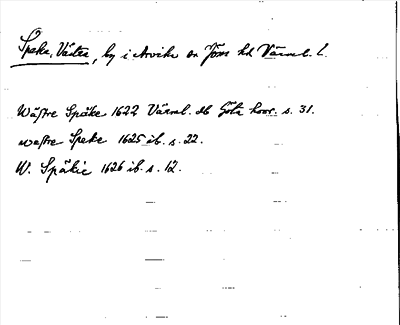 Speke, Västra, by i Arvika sn Jösse hd Värml. l.
Wästre Späke 1622 Värml. db Göta hovr. s. 31.
wästre Speke 1625 ib. s. 22.
W. Späkie 1626 ib. s. 12.